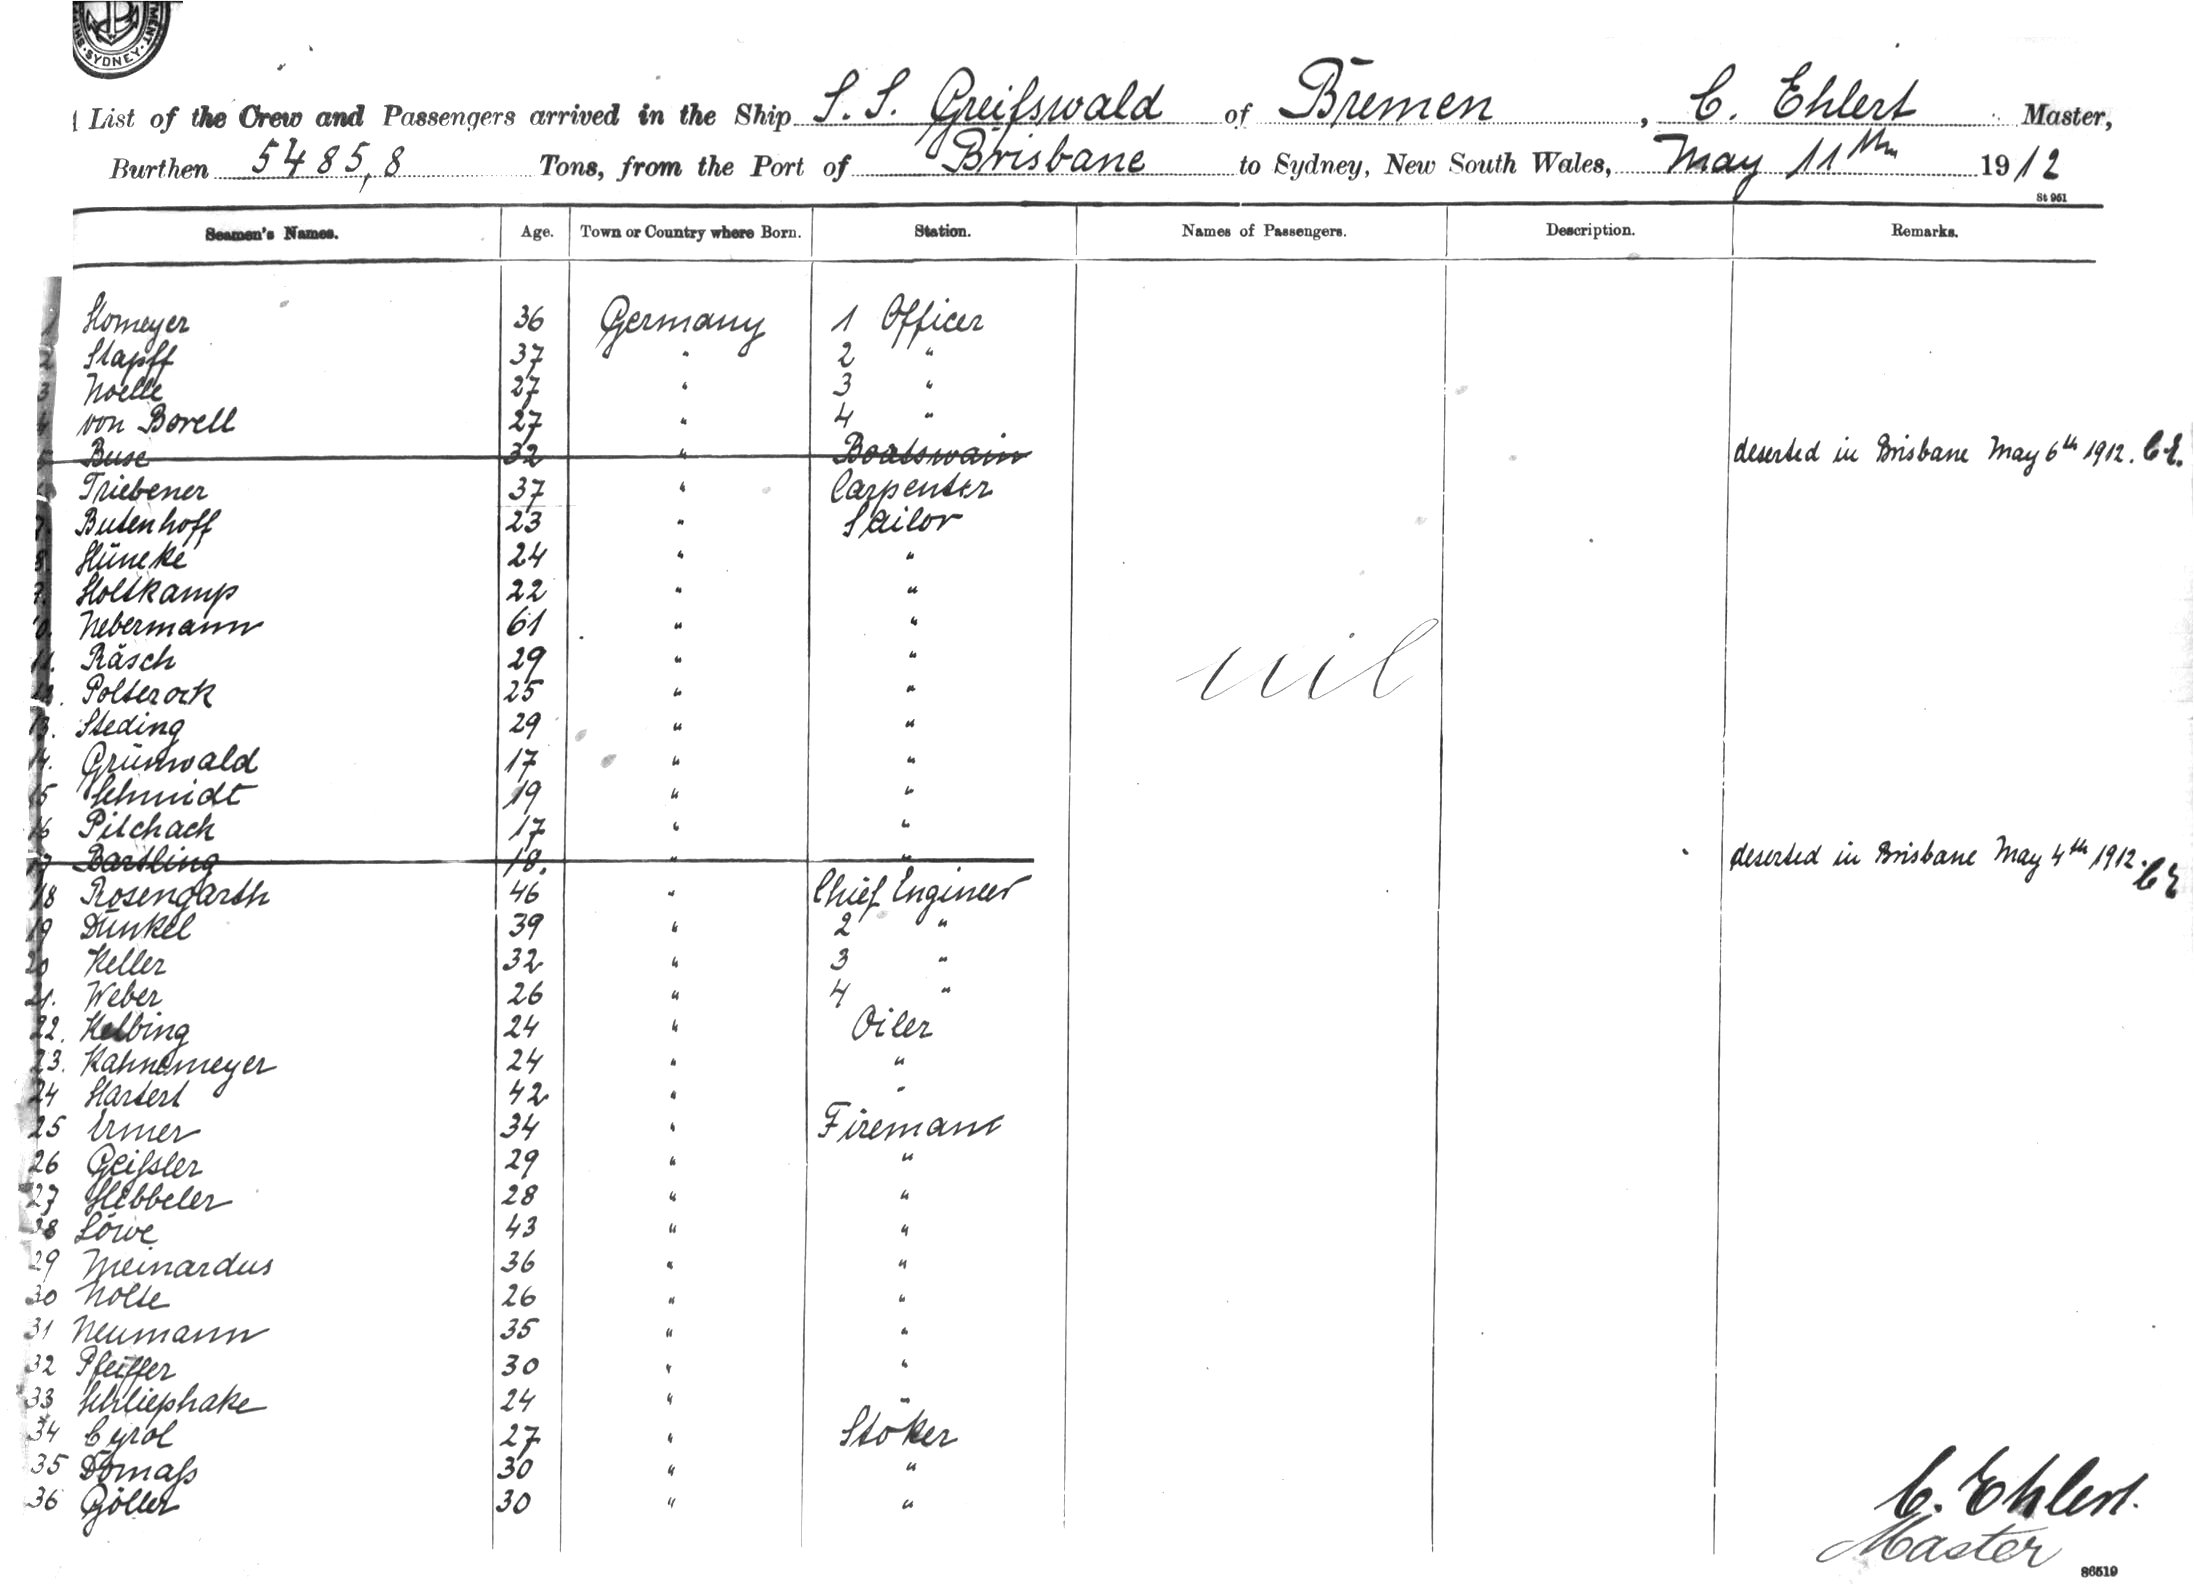 SYDNEY
List of the Crew and Passengers arrived in the Ship S. S. Greifswald of Bremen, C. Ehlert Master,
Burthen 5485,8 Tons, from the Port of Brisbane to Sydney, New South Wales, May 11th 1912
St 951
Seamen's Names. Age. Town or Country where Born. Station. Names of Passengers. Description. Remarks.
1 Homeyer 36 Germany 1 Officer
2 Stapff 37 " 2 "
3 Noelle 27 " 3 "
4 von Borell 27 " 4 "
5 Buse 32 " Boatswain deserted in Brisbane May 6th 1912. C.E.
6 Triebener 37 " Carpenter
7. Butenhoff 23 " Sailor
8. Hüneke 24 " "
9. Holtkamp 22 " "
10. Nebermann 61 " "
11. Räsch 29 " "
nil
12. Polterock 25 " "
13. Steding 29 " "
14. Grünwald 17 " "
15 Schmidt 19 " "
16 Pilchack 17 " "
17 Bartling 18. " " deserted in Brisbane May 4th 1912. C E
18 Rosengarth 46 " Chief Engineer
19 Dünkel 39 " 2 "
20 Keller 32 " 3 "
21. Weber 26 " 4 "
22. Helbing 24 " Oiler
23. Kahnemeyer 24 " "
24 Hartert 42 " "
25 Ermer 34 " Firemann
26 Geißler 29 " "
27 Hebbeler 28 " "
28 Löwe 43 " "
29 Meinardus 36 " "
30 Nolte 26 " "
31 Neumann 35 " "
32 Pfeiffer 30 " "
33 Schliephake 24 " "
34 Cyrol 27 " Stoker
35 Domaß 30 " "
36 Göller 30 " "
C. Ehlert.
Master
86519